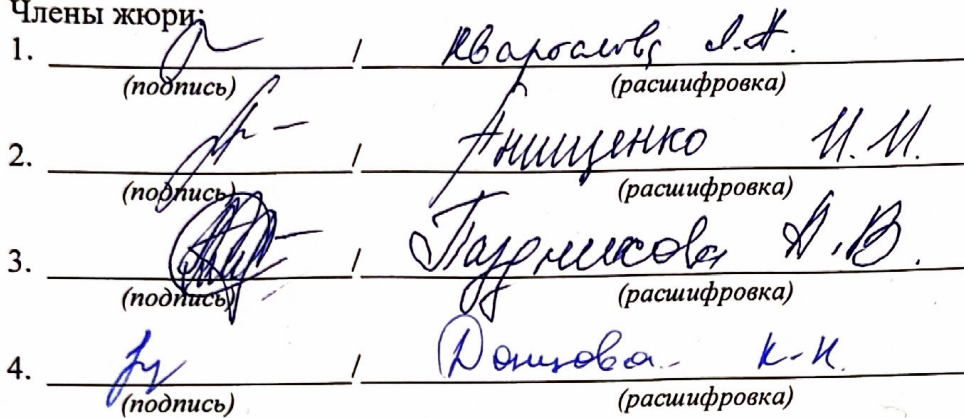 Члены жюри:
1. / Л.А.
(подпись) (расшифровка)
2. / Анищенко И.И.
(подпись) (расшифровка)
3. / Паздникова А.В.
(подпись) (расшифровка)
4. / Донцова К.К.
(подпись) (расшифровка)